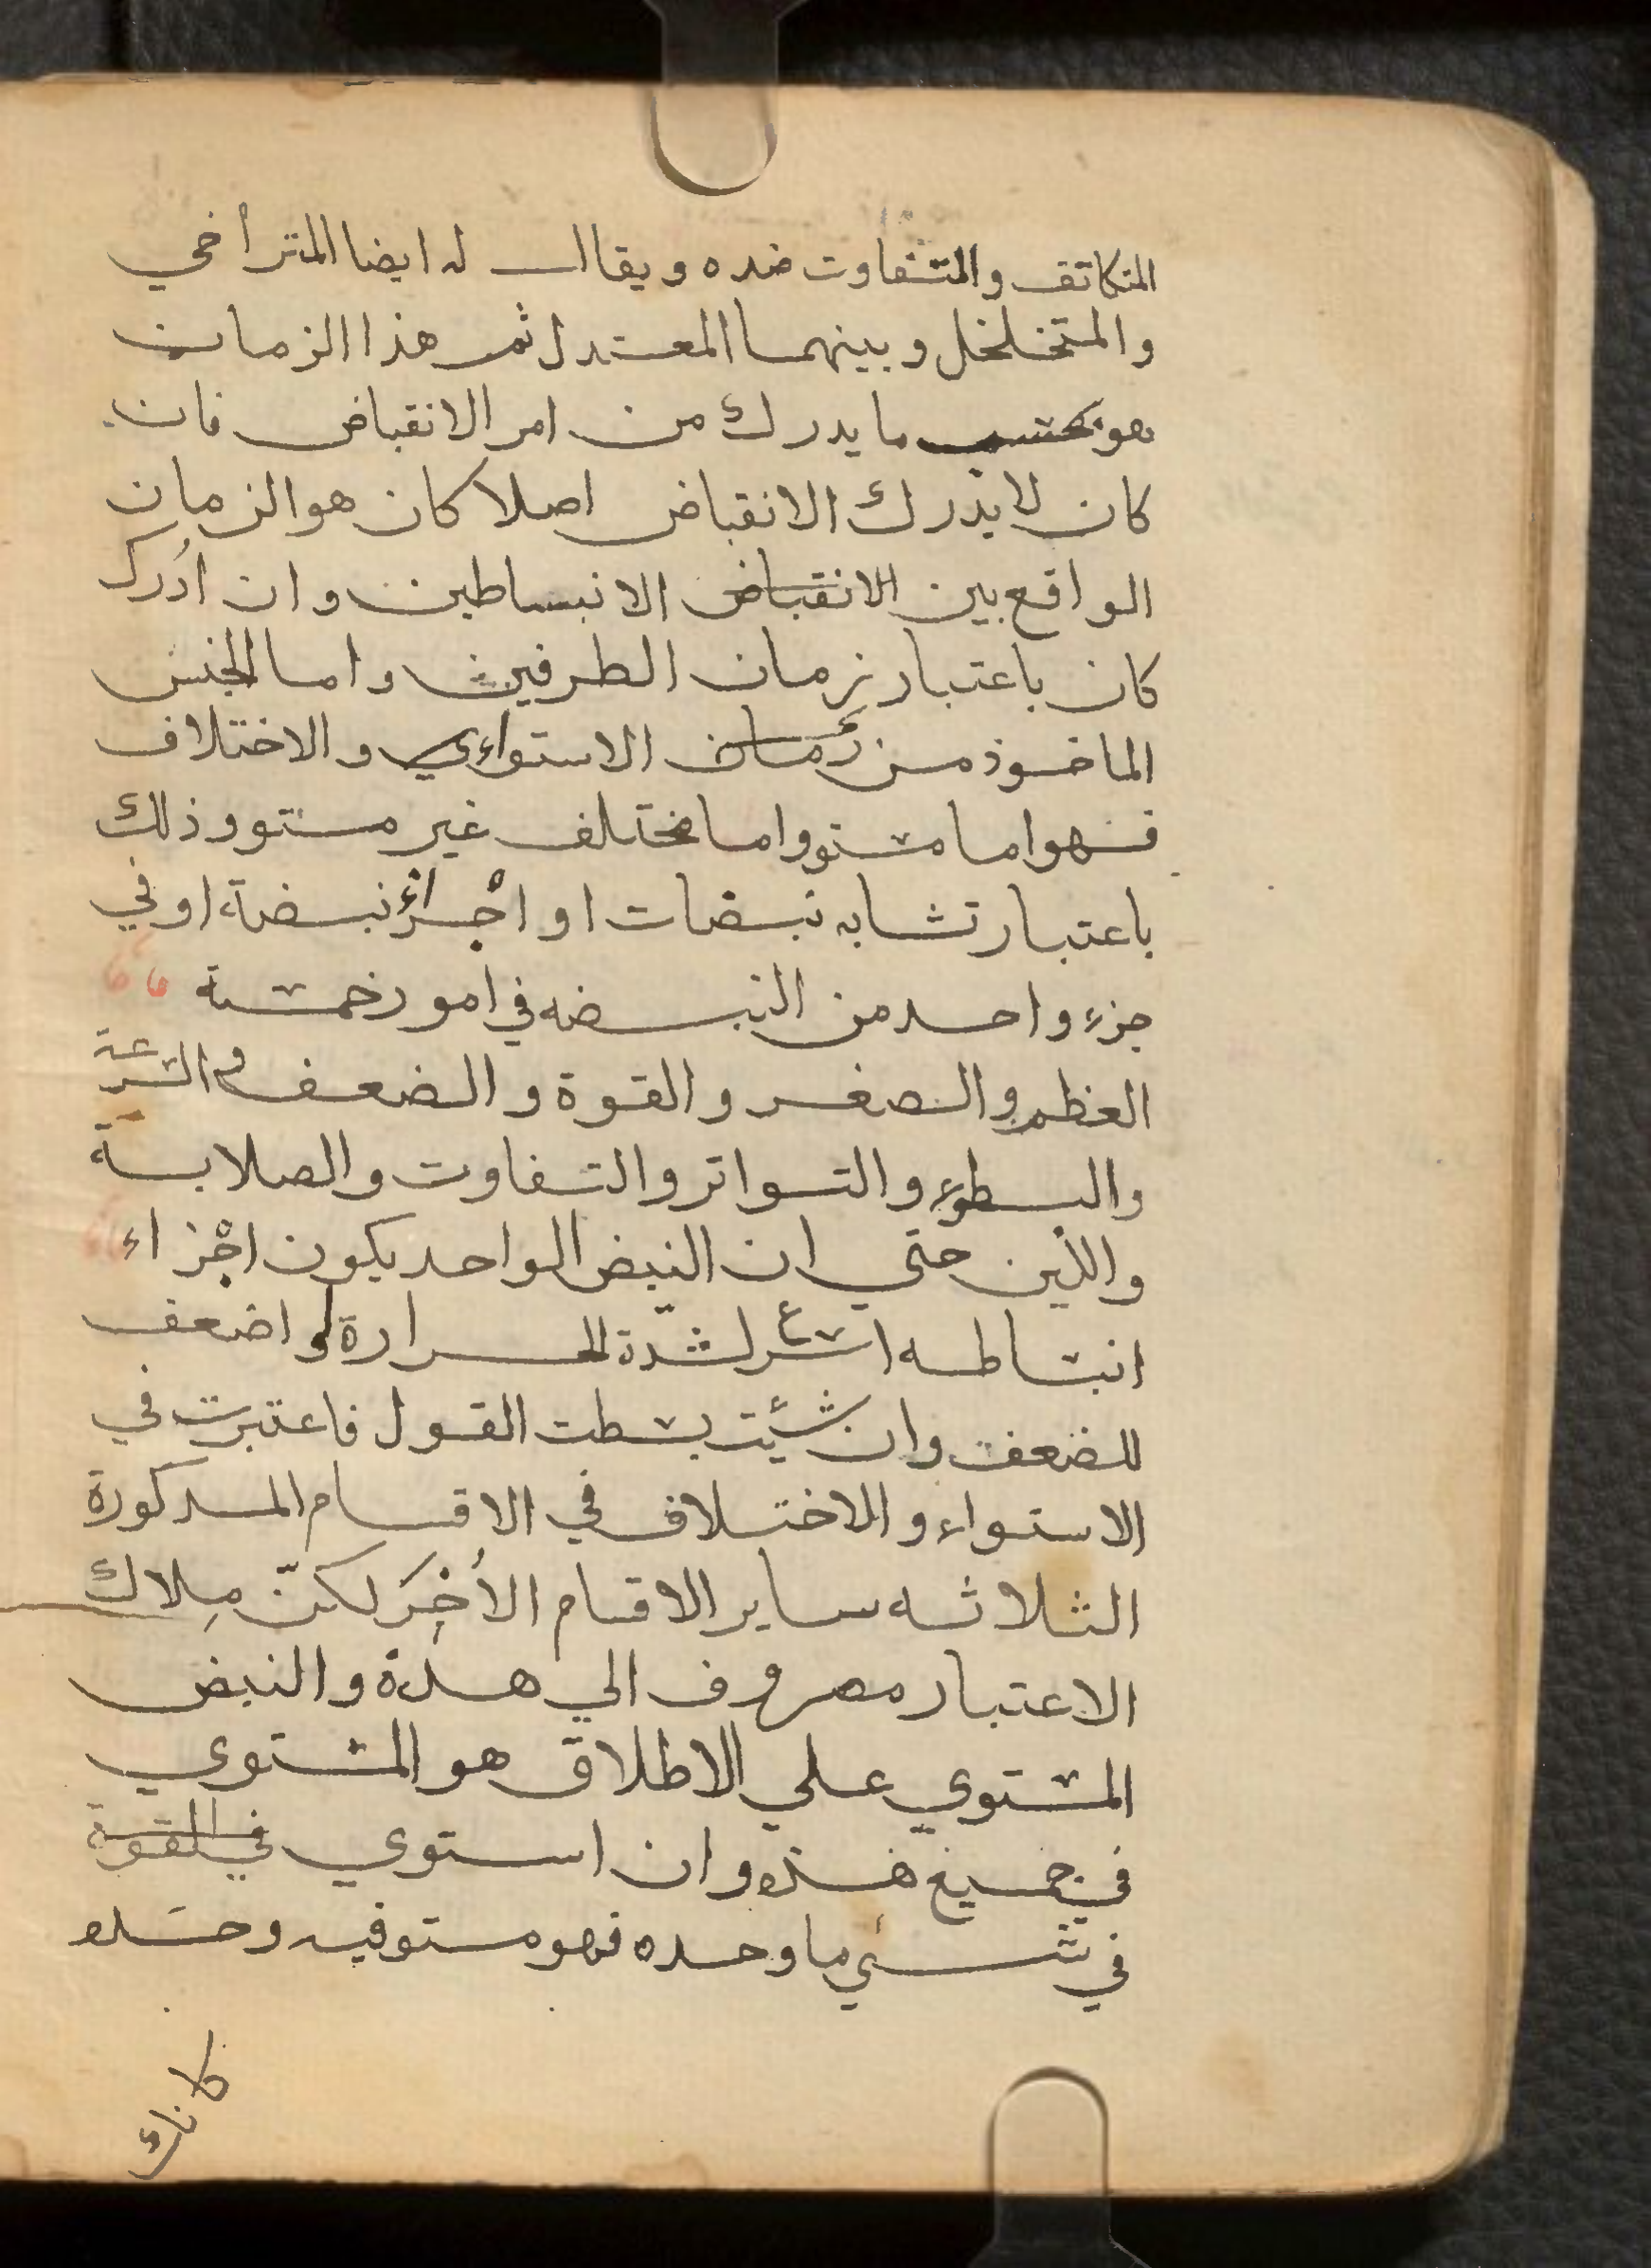 المتكاثف والمتفاوت ضده ويقال له ايضا المترأخي
والمتخلخل وبينهما المعتدل ثم هذا الزمان
هو بحسب ما يدرك من امر الانقباض فان
كان لا يدرك الانقباض اصلا كان هو الزمان
الواقع بين الانقباض الانبساطين وان ادرك
كان باعتبار زمان الطرفين واما الجنس
الماخوذ من زمان الاستواءي والاختلاف
فهو اما مستو واما مختلف غير مستو وذلك
باعتبار تشابه نبضات او اجزاء نبضة او في
جزء واحد من النبضه في امور خمسة
العظم والصغر والقوة والضعف والسرعة
والبطوء والتواتر والتفاوت والصلابة
واللين حتي ان النبض الواحد يكون اجزاء
انبساطه اسرع لشدة الحرارة او اضعف
للضعف وان شئيت بسطت القول فاعتبرت في
الاستواء والاختلاف في الاقسام المدكورة
الثلاثه ساير الاقسام الأخر لكنّ مِلاك
الاعتبار مصروف الي هذة والنبض
المستوي علي الاطلاق هو المستوي
في جميع هذه وان استوي في القوة
في شيء ما وحده فهو مستو فيه وحده
كانك